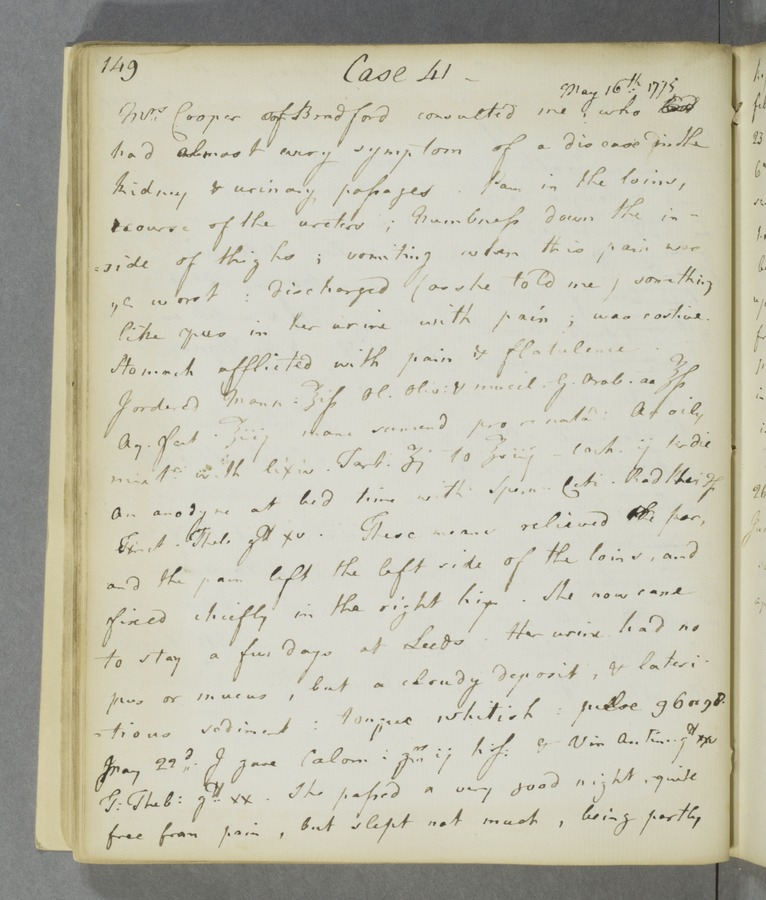 149 Case 41 -
May 16th 1775
Mrs: Cooper of Bradford consulted me; who
had almost every symptom of a disease in the
kidney & urinary passages. Pain in the loins,
course of the ureters; Numbness down the in-
=side of thighs; vomiting when this pain was
ye worst: discharged (as she told me) something
like pus in her urine with pain; was costive.
Stomach afflicted with pain & flatulence.
I ordered Mann: ℥iſs Ol. Oliv: & mucil. G. Arab. aa ℥ſs
Aq. font. ℥iij mane sumend pro re nata: An oily
mixte. with lixiv. Tart. ʒj to ℥viij - coch. ij ter die
an anodyne at bed time with Sperm: Ceti.
Tinct. Theb. gtt xv. These means relieved the
and the pain left the left side of the loins, and
fixed chiefly in the right hip. She now came
to stay a few days at Leeds. Her urine had no
pus or mucus, but a cloudy deposit, & lateri-
-tious sediment: tongue whitish: pulse 96 or 98.
May 22d. I gave Calom: grs ij & Vin Antim. gtt xxv
T: Theb: gtt xx. She passed a very good night, quite
free from pain, but slept not much, being partly